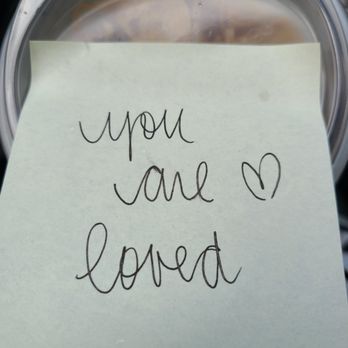 you
are ♡
loved